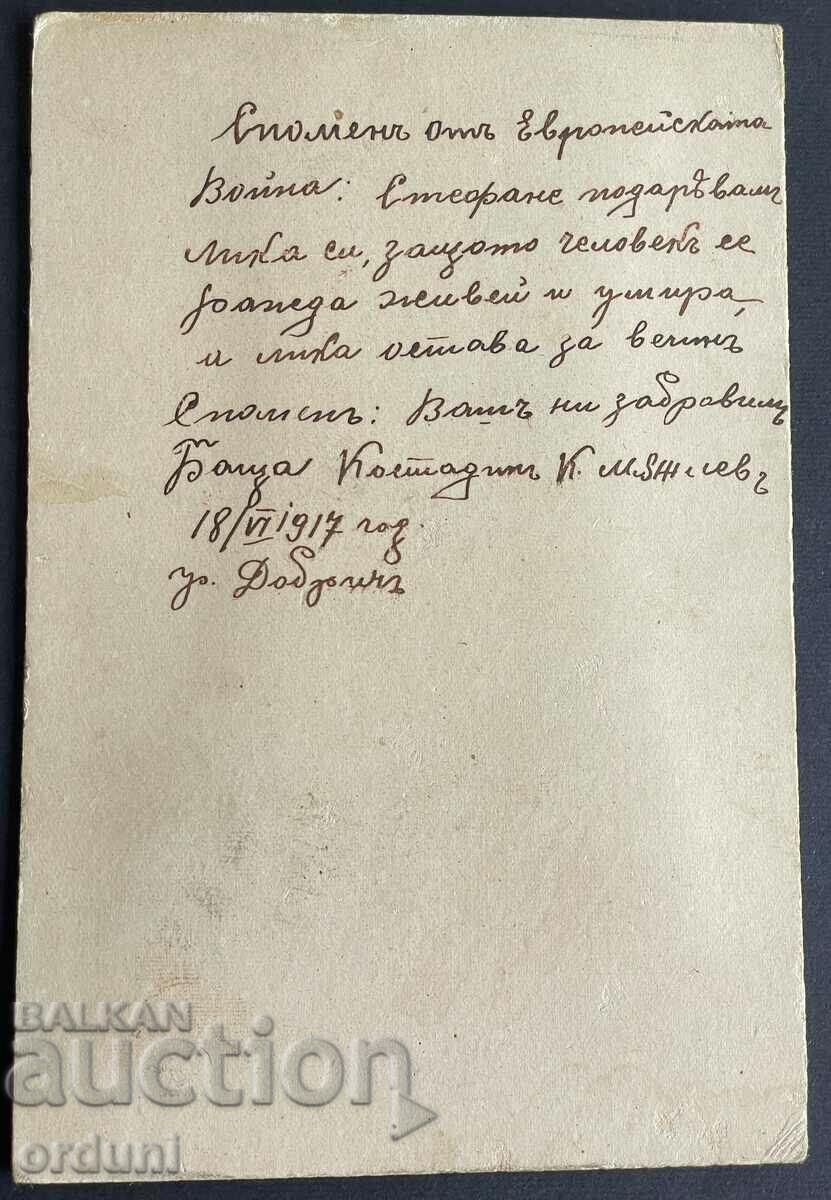 Споменъ отъ Европейската
Война: Стефане подарѣвамъ
Лика си, защото человекъ се
ражда живей и умира,
и лика остава за веченъ
Споменъ: Вашъ ни забравимъ
Баща Костадинъ К.
18/VI 1917 год.
гр. Добричъ
BALKAN
auction
orduni